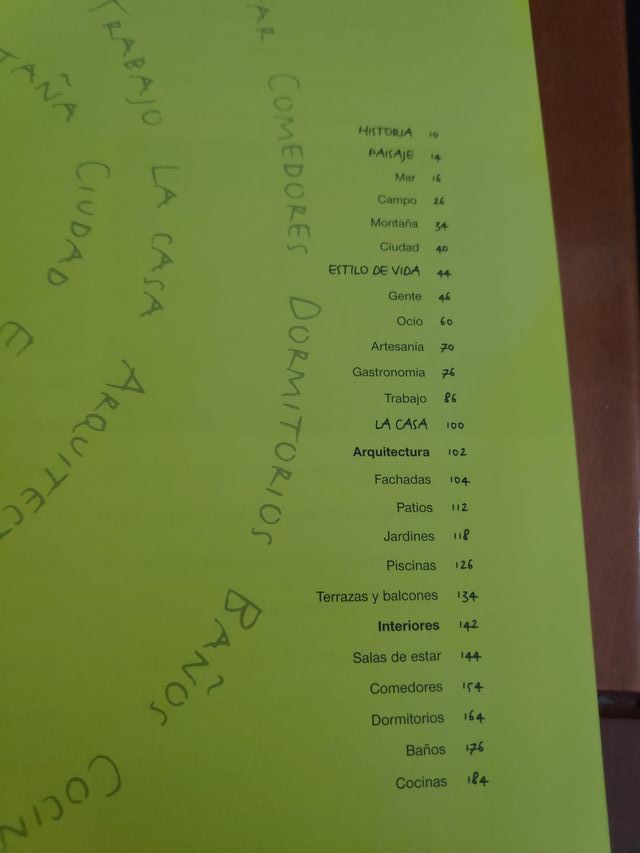 HISTORIA 10
PAISAJE 14
Mar 16
Campo 26
Montaña 34
Ciudad 40
ESTILO DE VIDA 44
Gente 46
Ocio 60
Artesanía 70
Gastronomía 76
Trabajo 86
LA CASA 100
Arquitectura 102
Fachadas 104
Patios 112
Jardines 118
Piscinas 126
Terrazas y balcones 134
Interiores 142
Salas de estar 144
Comedores 154
Dormitorios 164
Baños 176
Cocinas 184
AR COMEDORES DORMITORIOS BAÑOS COCIN
TRABAJO LA CASA ARQUITECT
TAÑA CIUDAD E